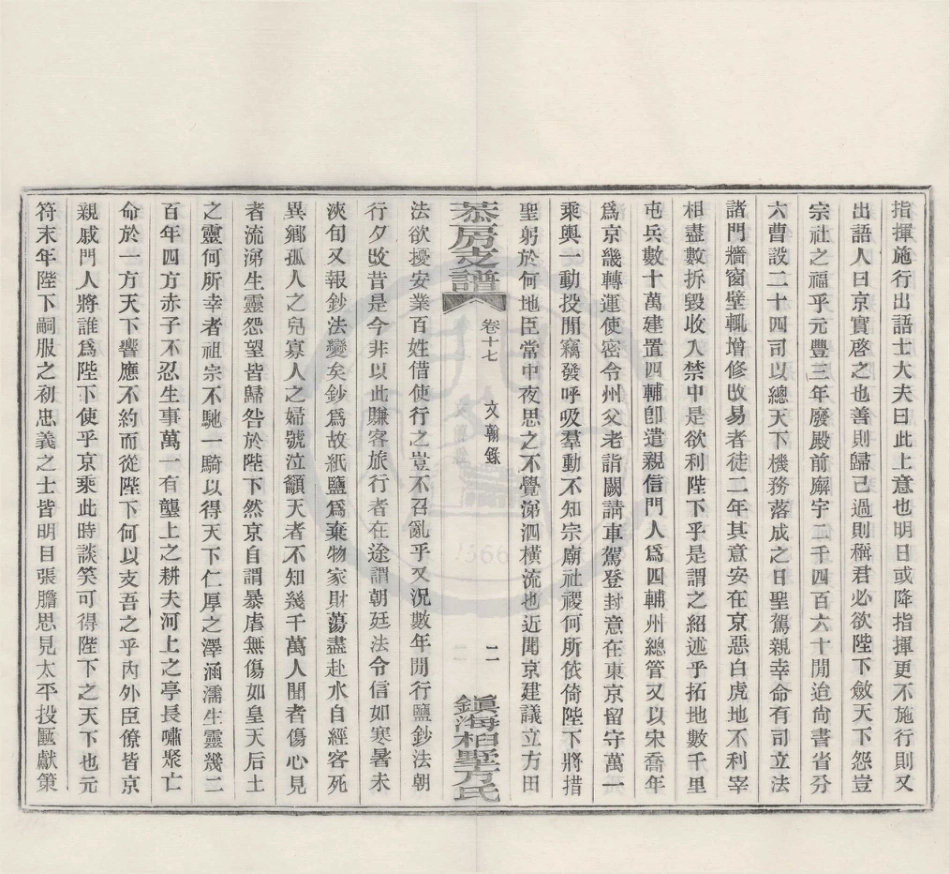 指揮施行出語士大夫曰此上意也明日或降指揮更不施行則又
出語人曰京實啓之也善則歸己過則稱君必欲陛下斂天下怨豈
宗社之福乎元豐三年廢殿前廨宇二千四百六十閒造尚書省分
六曹設二十四司以總天下機務落成之日聖駕親幸命有司立法
諸門牆窗壁輒增修改易者徒二年其意安在京惡白虎地不利宰
相盡數拆毀收入禁中是欲利陛下乎是謂之紹述乎拓地數千里
屯兵數十萬建置四輔卽遣親信門人爲四輔州總管又以宋喬年
爲京畿轉運使密令州父老詣闕請車駕登封意在東京留守萬一
乘輿一動投閒竊發呼吸羣動不知宗廟社稷何所依倚陛下將措
聖躬於何地臣當中夜思之不覺涕泗橫流也近聞京建議立方田
慕房支譜
卷十七
文翰錄
二
鎮海柏墅方氏
法欲擾安業百姓借使行之豈不召亂乎又況數年閒行鹽鈔法朝
行夕改昔是今非以此賺客旅行者在途謂朝廷法令信如寒暑未
浹旬又報鈔法變矣鈔爲故紙鹽爲棄物家財蕩盡赴水自經客死
異鄉孤人之兒寡人之婦號泣籲天者不知幾千萬人聞者傷心見
者流涕生靈怨望皆歸咎於陛下然京自謂暴虐無傷如皇天后土
之靈何所幸者祖宗不馳一騎以得天下仁厚之澤涵濡生靈幾二
百年四方赤子不忍生事萬一有壟上之耕夫河上之亭長嘯聚亡
命於一方天下響應不約而從陛下何以支吾之乎內外臣僚皆京
親戚門人將誰爲陛下使乎京乘此時談笑可得陛下之天下也元
符末年陛下嗣服之初忠義之士皆明目張膽思見太平投匭獻策